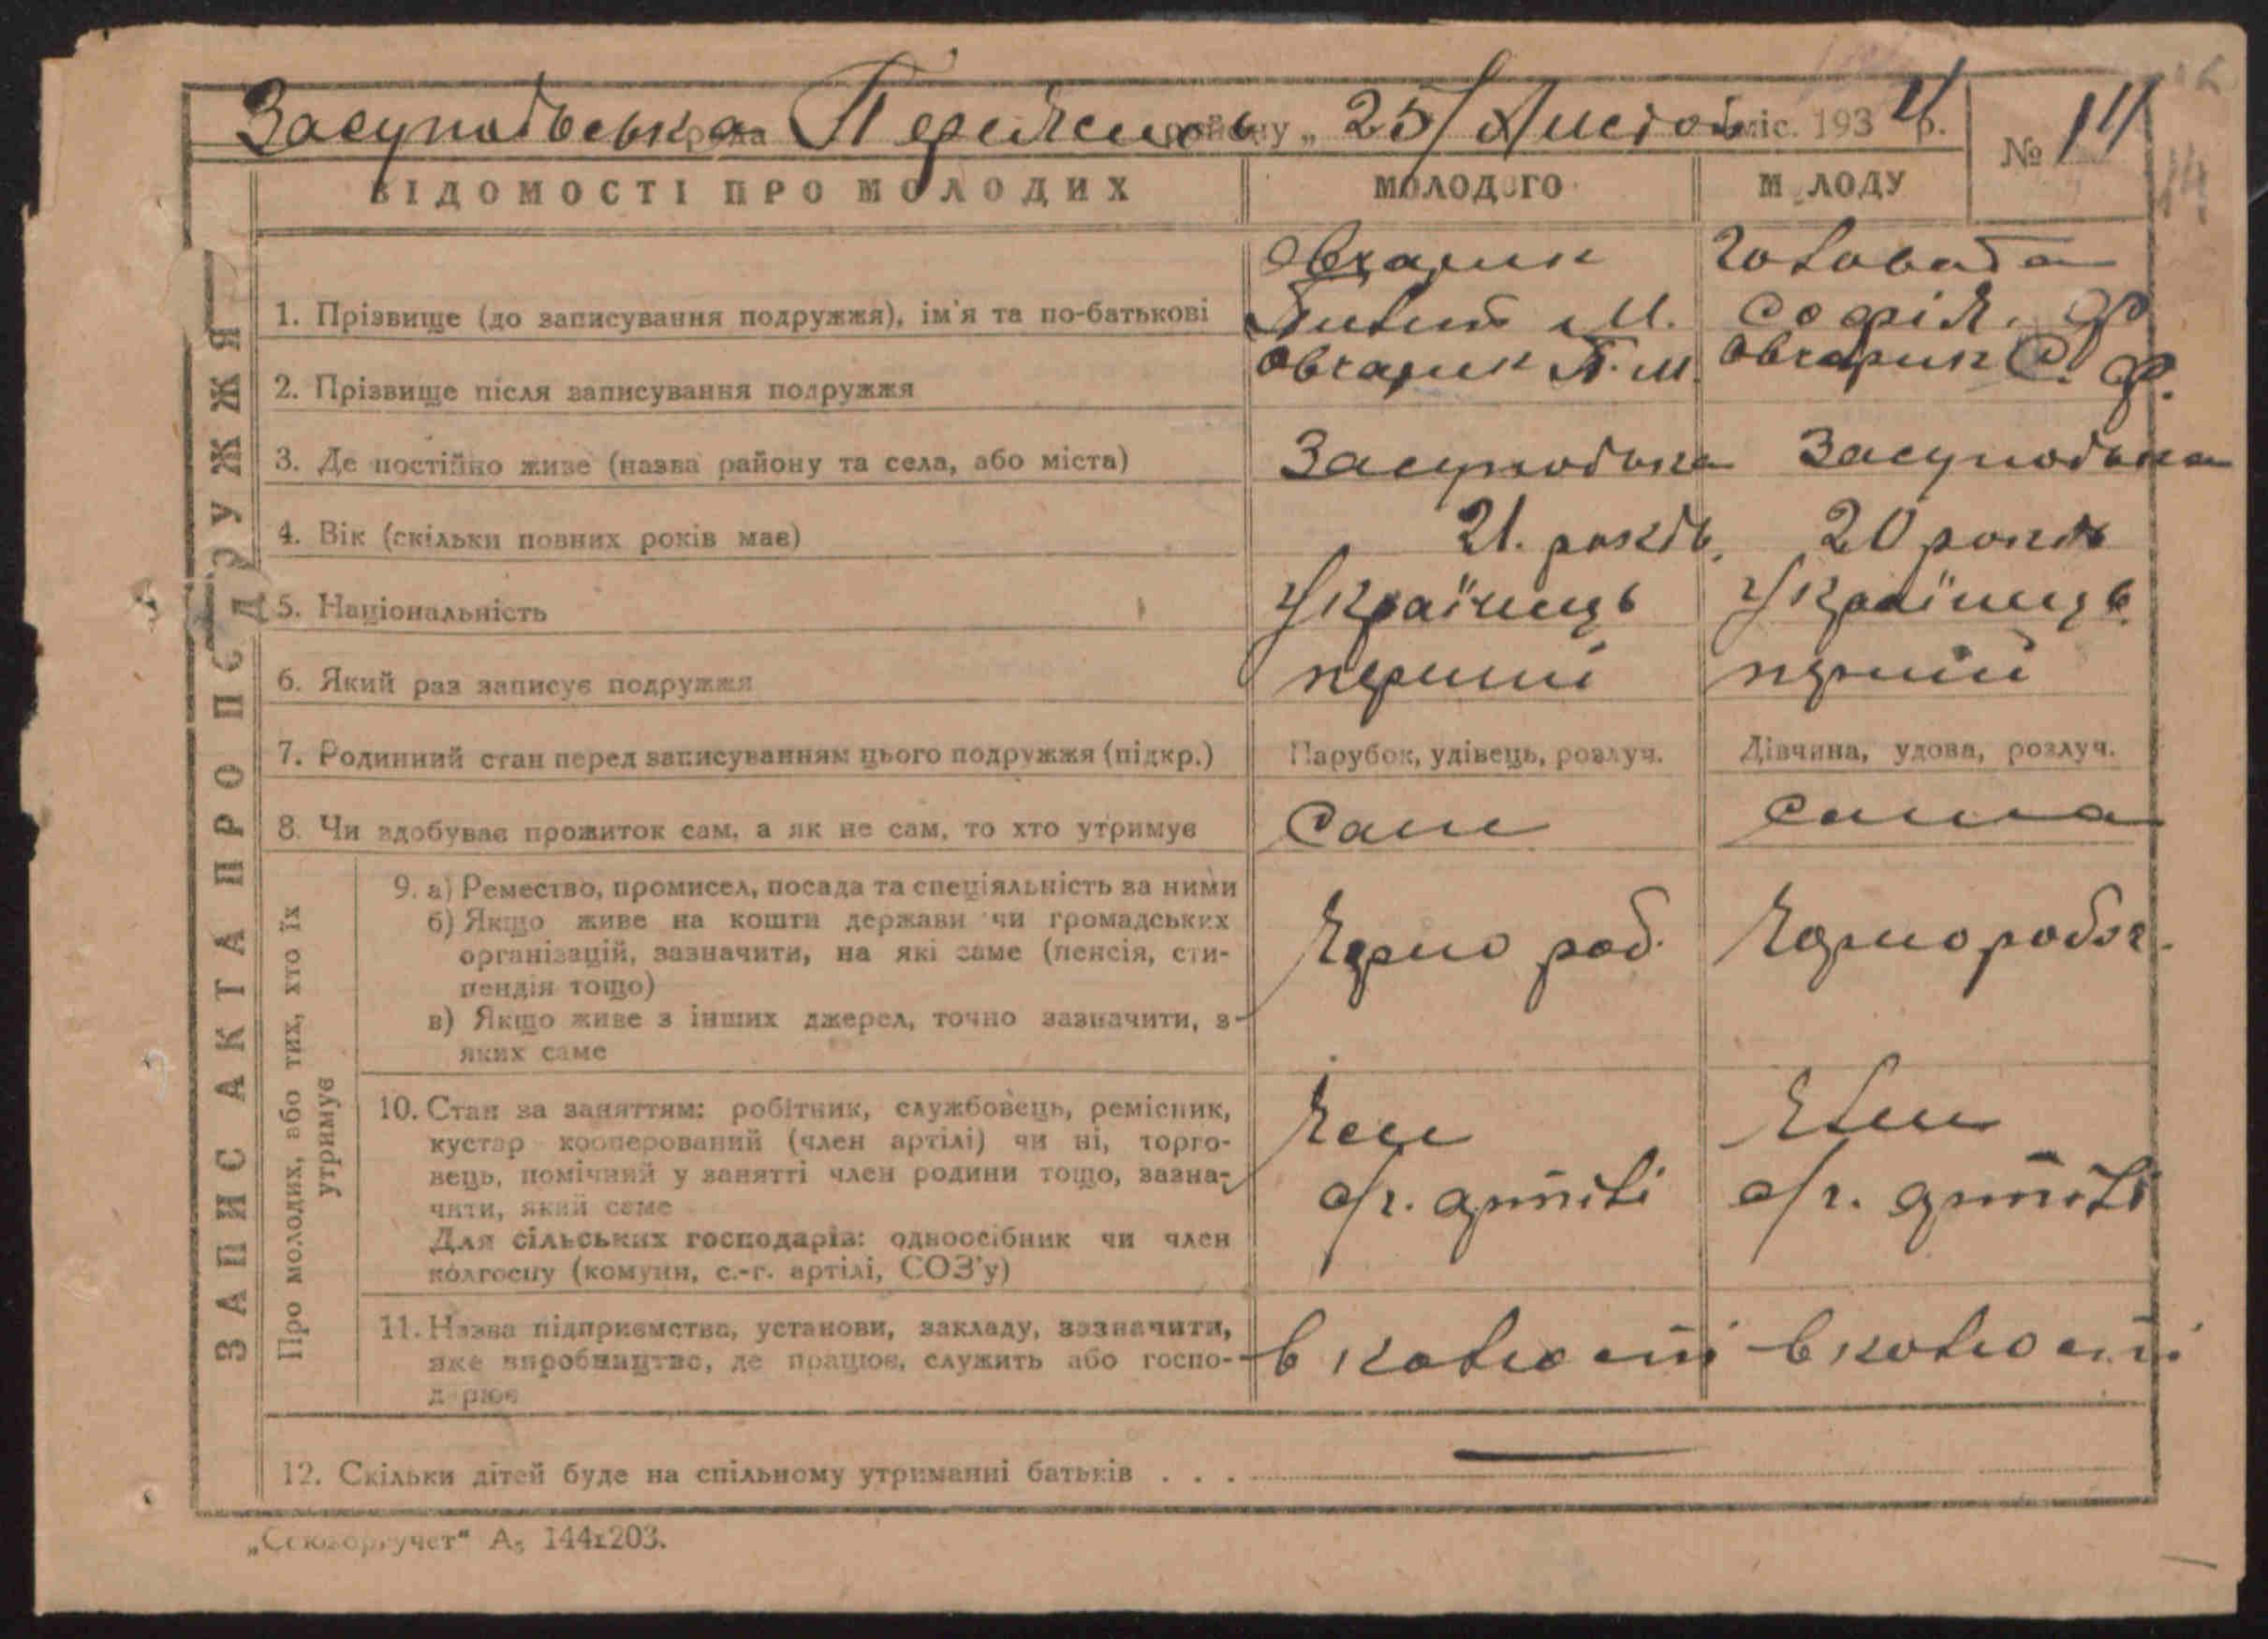 Засупоївська рада Переяслав району „ 25/ Листоп міс. 1934 р.
№ 14
14
ВІДОМОСТІ ПРО МОЛОДИХ МОЛОДОГО МОЛОДУ
ЗАПИС АКТА ПРО ПОДРУЖЖЯ
Овчарик Головата
1. Прізвище (до записування подружжя), ім'я та по-батькові М. Софія. Ф
2. Прізвище після записування подружжя Овчарик П. М. Овчарик С. Ф.
3. Де постійно живе (назва району та села, або міста)
4. Вік (скільки повних років має) 21. років. 20 років
5. Національність Українець Українець
6. Який раз записує подружжя перший перший
7. Родинний стан перед записуванням цього подружжя (підкр.) Парубок, удівець, розлуч. Дівчина, удова, розлуч.
8. Чи здобуває прожиток сам, а як не сам, то хто утримує Сам сама
Про молодих, або тих, хто їх
утримує
9. а) Ремество, промисел, посада та спеціяльність за ними
б) Якщо живе на кошти держави чи громадських
організацій, зазначити, на які саме (пенсія, сти-
пендія тощо)
в) Якщо живе з інших джерел, точно зазначити, з
яких саме
Чорно роб. Чорноробоч.
10. Стан за заняттям: робітник, службовець, ремісник,
кустар кооперований (член артілі) чи ні, торго-
вець, помічний у занятті член родини тощо, зазна-
чити, який саме
Для сільських господарів: одноосібник чи член
колгоспу (комуни, с.-г. артілі, СОЗ'у)
Член Член
с/г. артілі с/г. артілі
11. Назва підприємства, установи, закладу, зазначити,
яке виробництво, де працює, служить або госпо-
дарює
в колгоспі в колгоспі
12. Скільки дітей буде на спільному утриманні батьків . . . —
„Союзоргучет“ А5 144х203.